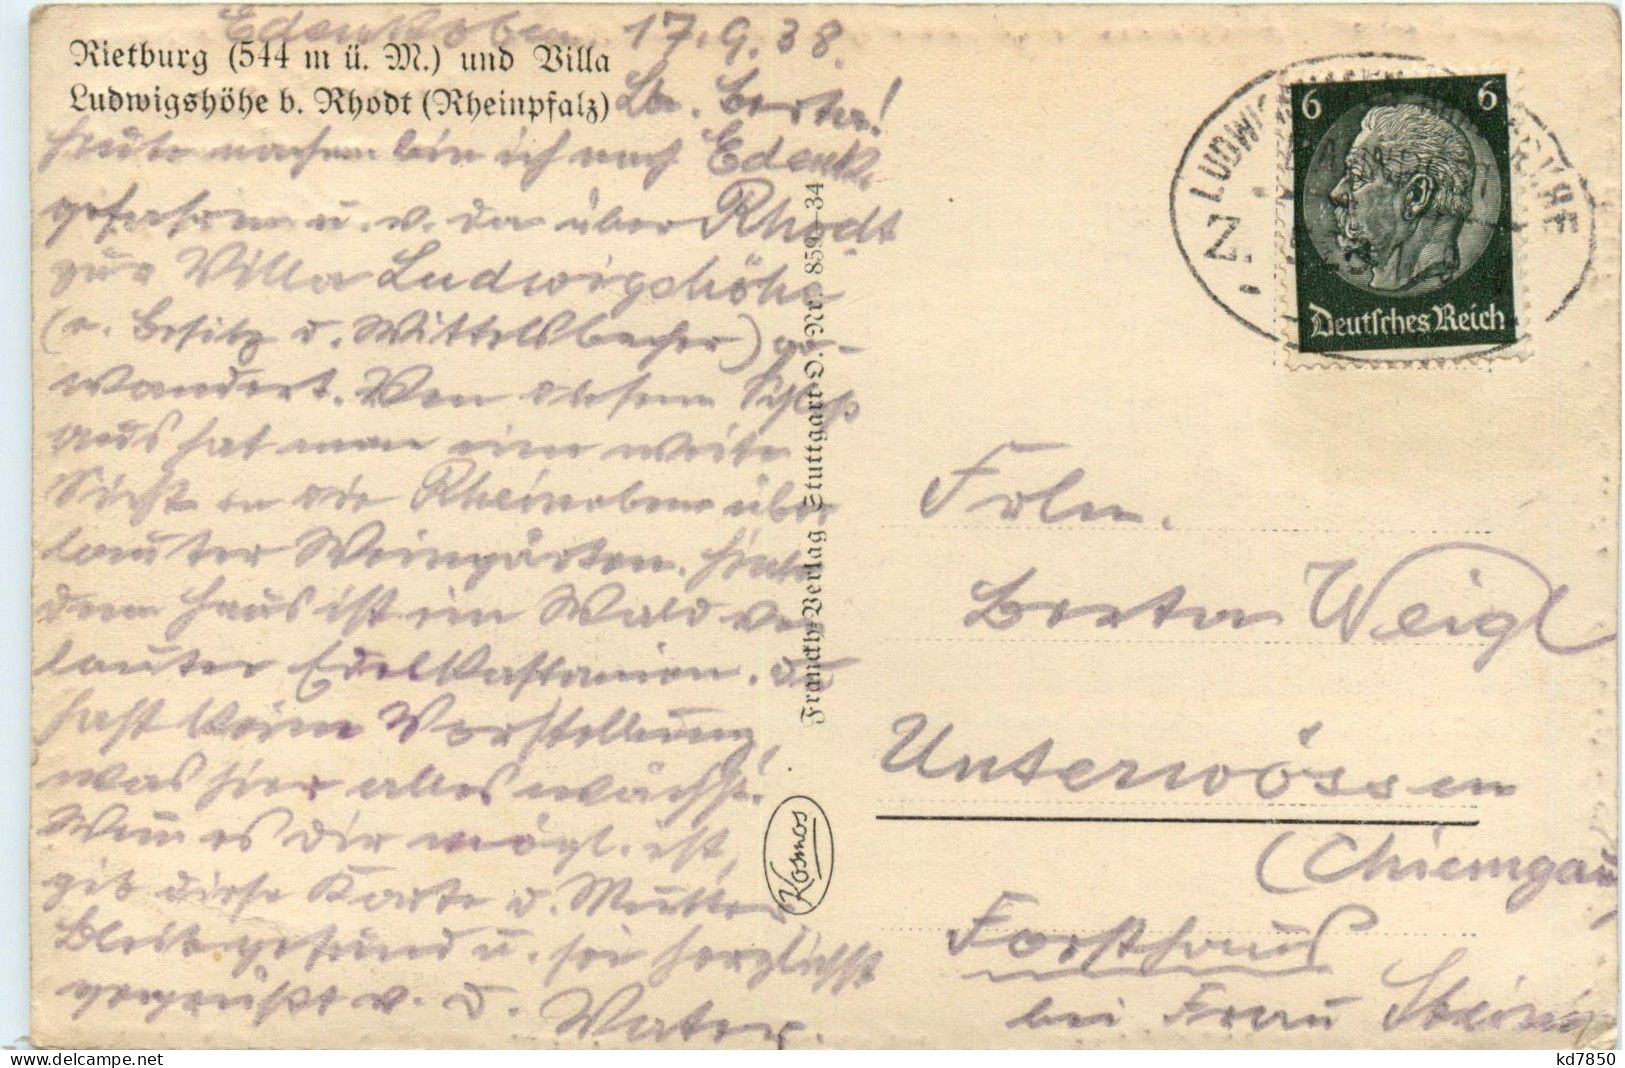 Edenkoben, 17.9.38.
Rietburg (544 m ü. M.) und Villa
Ludwigshöhe b. Rhodt (Rheinpfalz)
Lb. Berta!
Heute nachm. bin ich nach Edenk.
gefahren u. v. da über Rhodt
zur Villa Ludwigshöhe
(r. Besitz d. Wittelsbacher) ge-
wandert. Von diesem Schloß
aus hat man eine weite
Sicht in die Rheinebene über
lauter Weingärten. Hinter
dem Haus ist ein Wald von
lauter Edelkastanien. Du
hast keine Vorstellung,
was hier alles wächst!
Wenn es dir mögl. ist,
gib diese Karte d. Mutter
Bleib gesund u. sei herzlichst
gegrüßt v. d. Vater.
Franckh-Verlag Stuttgart-O. Nr. 859-34
Kosmos
6 6
Deutsches Reich
LUDWIGS
Z
Frln.
Berta Weigl
Unterwössen
(Chiemgau)
Forsthaus
bei Frau